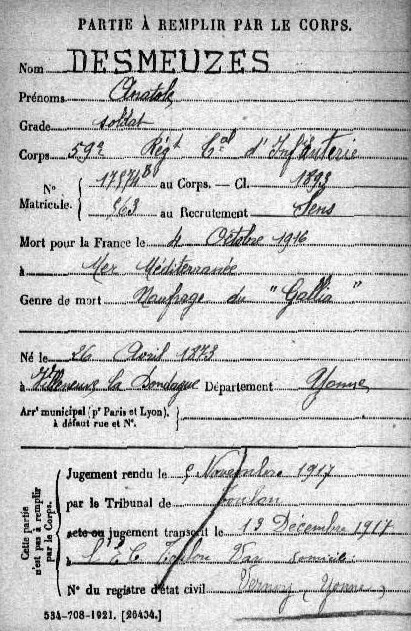 PARTIE À REMPLIR PAR LE CORPS.
Nom DESMEUZES
Prénoms Anatole
Grade soldat
Corps 59e Régt Cal d'Infanterie
N° 17574B au Corps. - Cl. 1893
Matricule. 563 au Recrutement Sens
Mort pour la France le 4 Octobre 1916
à Mer Méditerranée
Genre de mort Naufrage du "Gallia"
Né le 26 Avril 1873
à Villeneuve la Dondagre Département Yonne
Arrt municipal (pr Paris et Lyon), à défaut rue et N°.
Cette partie n'est pas à remplir par le Corps.
Jugement rendu le 5 Novembre 1917
par le Tribunal de Toulon
acte ou jugement transcrit le 13 Décembre 1917
à Toulon Var
N° du registre d'état civil Vernoy (Yonne)
534-708-1921. [26434.]